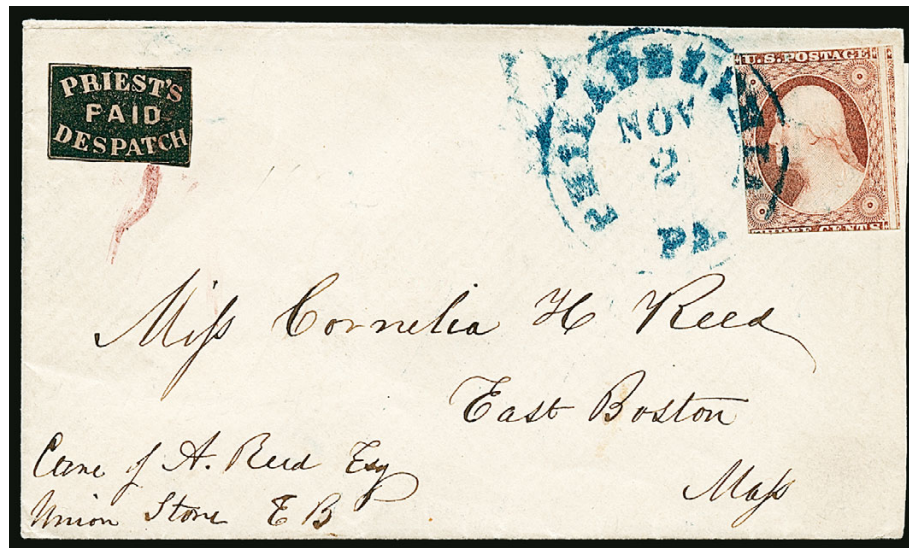 PRIEST'S
PAID
DESPATCH
PHILADELPHIA
NOV
2
PA.
U.S. POSTAGE
THREE CENTS
Miss Cornelia H Reed
East Boston
Mass
Care of A. Reed Esq
Union Store E B